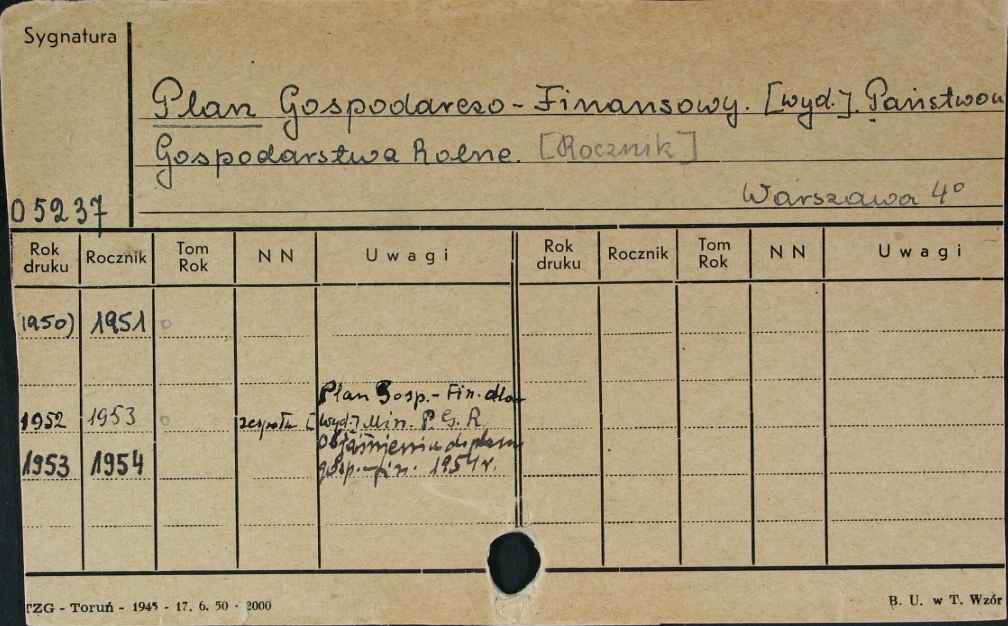 Sygnatura
Plan Gospodarczo-Finansowy. [wyd.]. Państwow
Gospodarstwa Rolne. [Rocznik]
Warszawa 4°
05237
Rok druku Rocznik Tom Rok NN Uwagi Rok druku Rocznik Tom Rok NN Uwagi
1950) 1951
Plan Gosp.-Fin. dla
1952 1953 zespołu [wyd.] Min. P.G.R.
Objaśnienia do planu
1953 1954 gosp.-fin. 1954 r.
TZG - Toruń - 1945 - 17. 6. 50 - 2000
B. U. w T. Wzór